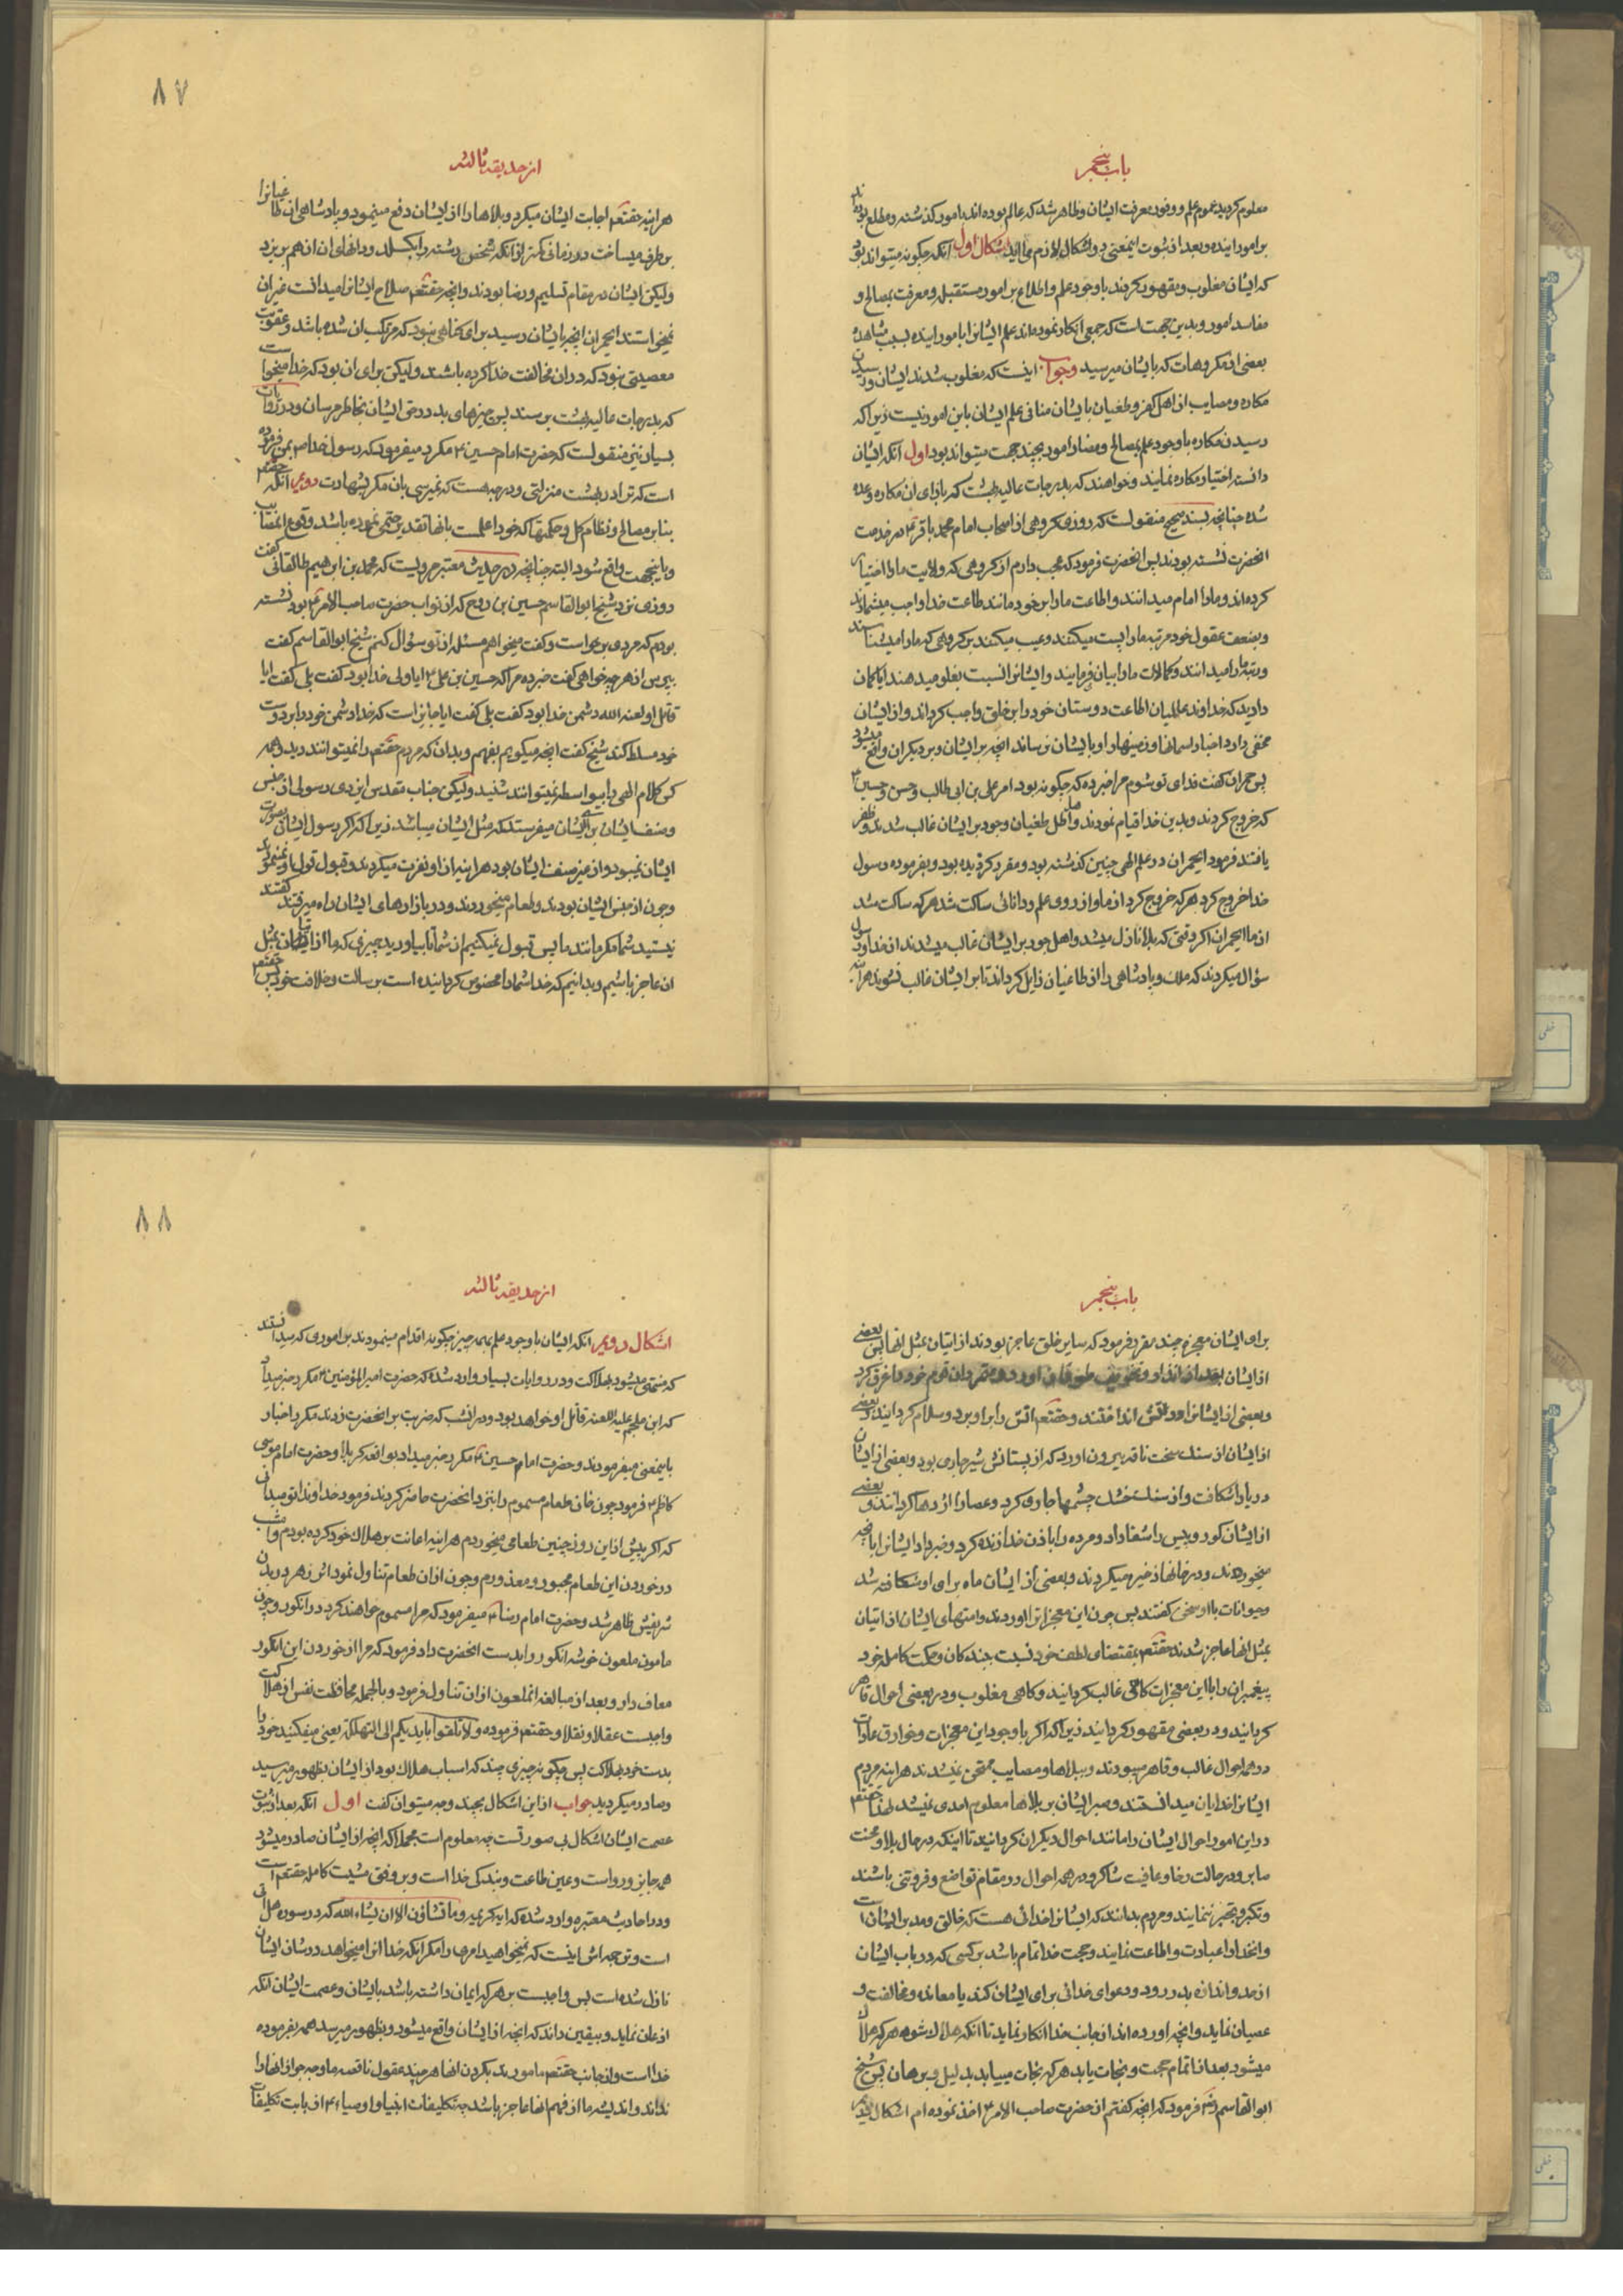 باب پنجم
معلوم کردید عموم علم و وفور معرفت ایشان و ظاهر شد که عالم بوده‌اند بامور کذشته و مطلع بوده‌اند
بر امور اینده و بعد از ثبوت اینمعنی دو اشکال لازم می‌اید اشکال اول آنکه چکونه میتواند بود
که ایشان مغلوب و مقهور کردند با وجود علم و اطلاع بر امور مستقبله و معرفت بمصالح و
مفاسد امور و بدین جهت است که جمعی انکار نموده‌اند علم ایشانرا بامور اینده بسبب مشاهده
بعضی از مکروهات که بایشان میرسید و جواب اینست که مغلوب شدن ایشان و رسیدن
مکاره و مصایب از اهل کفر و طغیان بایشان منافی علم ایشان باین امور نیست زیرا که
رسیدن مکاره با وجود علم بمصالح و مضار امور بچند جهت میتواند بود اول آنکه ایشان
دانسته اختیار مکاره نمایند و خواهند که بدرجات عالیه بهشت که بازای ان مکاره وعده
شده چنانچه بسند صحیح منقولست که روزی کروهی از اصحاب امام محمد باقر ع در خدمت
انحضرت نشسته بودند پس انحضرت فرمود که عجب دارم از کروهی که ولایت ما را اختیار
کرده‌اند و ما را امام میدانند و اطاعت ما را بر خود مانند طاعت خدا واجب میشمارند
و بضعف عقول خود مرتبه ما را پست میکنند و عیب میکنند بر کروهی که ما را میشناسند
و رتبه ما را میدانند و کمالات ما را بیان فرمایند و ایشانرا نسبت بغلو میدهند ایا کمان
دارید که خداوند عالمیان اطاعت دوستان خود را بر خلق واجب کرداند و از ایشان
مخفی دارد اخبار اسمانها و زمینها را و بایشان نرساند انچه بر ایشان و بر دیکران واقع میشود
پس حمران کفت فدای تو شوم مرا خبر ده که چکونه بود امر علی بن ابی طالب و حسن و حسین ع
که خروج کردند و بدین خدا قیام نمودند و اهل طغیان و جور بر ایشان غالب شدند و ظفر
یافتند فرمود ایحمران در علم الهی چنین کذشته بود و مقرر کردیده بود و بفرموده رسول
خدا خروج کرد هر که خروج کرد از ما و از روی علم و دانائی ساکت شد هر که ساکت شد
از ما ایحمران اکر وقتی که بلا نازل میشد و اهل جور بر ایشان غالب میشدند از خداوند
سؤال میکردند که ملک و پادشاهی را از طاغیان زایل کرداند تا بر ایشان غالب نشوند هرآینه
از حدیقه ثالثه
۸۷
هراینه حقتعم اجابت ایشان میکرد و بلاها را از ایشان دفع مینمود و پادشاهی ان طاغیانرا
بر طرف میساخت در زمانی کمتر از آنکه شخصی رشته را بکسلد و دانهای ان از هم بریزد
ولیکن ایشان در مقام تسلیم و رضا بودند و انچه حقتعم صلاح ایشانرا میدانست غیر ان
نمیخواستند ایحمران انچه بایشان رسید برای کناهی نبود که مرتکب ان شده باشند و عقوبت
معصیتی نبود که در ان مخالفت خدا کرده باشند ولیکن برای ان بود که خدا میخواست
که بدرجات عالیه بهشت برسند پس چیزهای بد در حق ایشان بخاطر مرسان و در روایات
بسیار نیز منقولست که حضرت امام حسین ع مکرر میفرمود که رسول خدا ص بمن فرموده
است که ترا در بهشت منزلتی و درجه هست که نمیرسی بان مکر بشهادت دویم آنکه حقتعم
بنا بر مصالح و نظام کل و حکمتها که خود اعلمست بانها تقدیر حتمی نموده باشد وقوع انمصایب
و باینجهت واقع شود البته چنانچه در حدیث معتبر مرویست که محمد بن ابرهیم طالقانی کفت
روزی نزد شیخ ابو القاسم حسین بن روح که از نواب حضرت صاحب الامر ع بود نشسته
بودم که مردی برخواست و کفت میخواهم مسئله از تو سؤال کنم شیخ ابو القاسم کفت
بپرس از هر چه خواهی کفت خبر ده مرا که حسین بن علی ع ایا ولی خدا بود کفت بلی کفت ایا
قاتل او لعنه الله دشمن خدا بود کفت بلی کفت ایا جایز است که خدا دشمن خود را بر دوست
خود مسلط کند شیخ کفت انچه میکویم بفهم و بدان که مردم حقتعم را نمیتوانند دید و همه
کس کلام الهی را بیواسطه نمیتوانند شنید ولیکن جناب مقدس ایزدی رسولی از جنس
و صنف ایشان بسوی ایشان میفرستد که مثل ایشان میباشد زیرا که اکر رسول ایشان بصورت
ایشان نمیبود و از غیر صنف ایشان بود هراینه از او نفرت میکردند و قبول قول او نمینمودند
و چون از جنس ایشان بودند و طعام میخوردند و در بازارهای ایشان راه میرفتند کفتند
نیستید شما مکر مانند ما پس قبول نمیکنیم از شما تا بیاورید چیزی که ما از اتیان بمثل
ان عاجز باشیم و بدانیم که خدا شما را مخصوص کردانیده است برسالت و خلافت خود پس حقتعم
باب پنجم
برای ایشان معجزه چند مقرر فرمود که سایر خلق عاجز بودند از اتیان بمثل انها پس بعضی
از ایشان بعد از انذار و تخویف طوفان اورد و متمردان قوم خود را غرق کرد
و بعضی از ایشانرا در آتش انداختند و حقتعم اتش را بر او برد و سلام کردانید و بعضی
از ایشان از سنک سخت ناقه بیرون اورد که از پستانش شیر جاری بود و بعضی از ایشان
دریا را شکافت و از سنک خشک چشمها جاری کرد و عصا را اژدها کردانند و بعضی
از ایشان کور و پیس را شفا داد و مرده را باذن خدا زنده کرد و خبر داد ایشانرا بانچه
میخوردند و در خانها ذخیره میکردند و بعضی از ایشان ماه برای او شکافته شد
و حیوانات با او سخن کفتند پس چون این معجزاترا اوردند و امتهای ایشان از اتیان
بمثل انها عاجز شدند حقتعم بمقتضای لطف خود نسبت ببندکان و حکمت کامله خود
پیغمبران را با این معجزات کاهی غالب کردانید و کاهی مغلوب و در بعضی احوال قاهر
کردانید و در بعضی مقهور کردانید زیرا که اکر با وجود این معجزات و خوارق عادات
در همه احوال غالب و قاهر میبودند و ببلاها و مصایب ممتحن نمیشدند هراینه مردم
ایشانرا خدایان میدانستند و صبر ایشان بر بلاها معلوم احدی نمیشد لهذا حقتعم
در این امور احوال ایشان را مانند احوال دیکران کردانید تا اینکه در حال بلا و محنت
صابر و در حالت رخا و عافیت شاکر و در همه احوال در مقام تواضع و فروتنی باشند
و تکبر و تجبر ننمایند و مردم بدانند که ایشانرا خدائی هست که خالق و مدبر ایشان است
و انخدا را عبادت و اطاعت نمایند و حجت خدا تمام باشد بر کسی که در باب ایشان
از حد و اندازه بدر رود و دعوای خدائی برای ایشان کند یا معانده و مخالفت و
عصیان نماید و انچه اورده‌اند از جانب خدا انکار نماید تا انکه هلاک شود هر که هلاک
میشود بعد از اتمام حجت و نجات یابد هر که نجات مییابد بدلیل و برهان پس شیخ
ابو القاسم فرمود که انچه کفتم از حضرت صاحب الامر ع اخذ نموده‌ام اشکال
از حدیقه ثالثه
۸۸
اشکال دویم آنکه ایشان با وجود علم بهمه چیز چکونه اقدام مینمودند بر اموری که میدانستند
که منتهی میشود بهلاکت و در روایات بسیار وارد شده که حضرت امیر المؤمنین ع مکرر خبر میداد
که ابن ملجم علیه اللعنه قاتل او خواهد بود و در انشب که ضربت بر انحضرت زدند مکرر اخبار
باینمعنی میفرمودند و حضرت امام حسین ع مکرر خبر میداد بواقعه کربلا و حضرت امام موسی
کاظم ع فرمود چون خان طعام مسموم را بنزد انحضرت حاضر کردند فرمود خداوندا تو میدانی
که اکر پیش از این روز چنین طعامی میخوردم هراینه اعانت بر هلاک خود کرده بودم و امشب
در خوردن این طعام مجبور و معذورم و چون از ان طعام تناول نمود اثر زهر در بدن
شریفش ظاهر شد و حضرت امام رضا ع میفرمود که مرا مسموم خواهند کرد در انکور و چون
مامون ملعون خوشه انکور را بدست انحضرت داد فرمود که مرا از خوردن این انکور
معاف دار و بعد از مبالغه انملعون از ان تناول فرمود و بالجمله محافظت نفس از هلاکت
واجبست عقلا و نقلا و حقتعم فرموده و لا تلقوا بایدیکم الی التهلکة یعنی میفکنید خود را
بدست خود بهلاکت پس چکونه چیزی چند که اسباب هلاک بود از ایشان بظهور میرسید
و صادر میکردید جواب از این اشکال بچند وجه میتوان کفت اول آنکه بعد از ثبوت
عصمت ایشان اشکال بی صورتست چه معلوم است مجملا که انچه از ایشان صادر میشود
همه جایز و رواست و عین طاعت و بندکی خدا است و بر وفق مشیت کامله حقتعم است
و در احادیث معتبره وارد شده که ایه کریمه و ما تشاؤن الا ان یشاء الله که در سوره هل اتی
است و ترجمه‌اش اینست که نمیخواهید امری را مکر انکه خدا انرا میخواهد در شان ایشان
نازل شده است پس واجبست بر هر که ایمان داشته باشد بایشان و عصمت ایشان آنکه
اذعان نماید و بیقین داند که انچه از ایشان واقع میشود و بظهور میرسد همه بفرموده
خدا است و از جانب حقتعم مامورند بکردن انها هر چند عقول ناقصه ما وجه جواز انها را
نداند و اندیشه ما از فهم انها عاجز باشد چه تکلیفات انبیا و اوصیاء ع از بابت تکلیفات